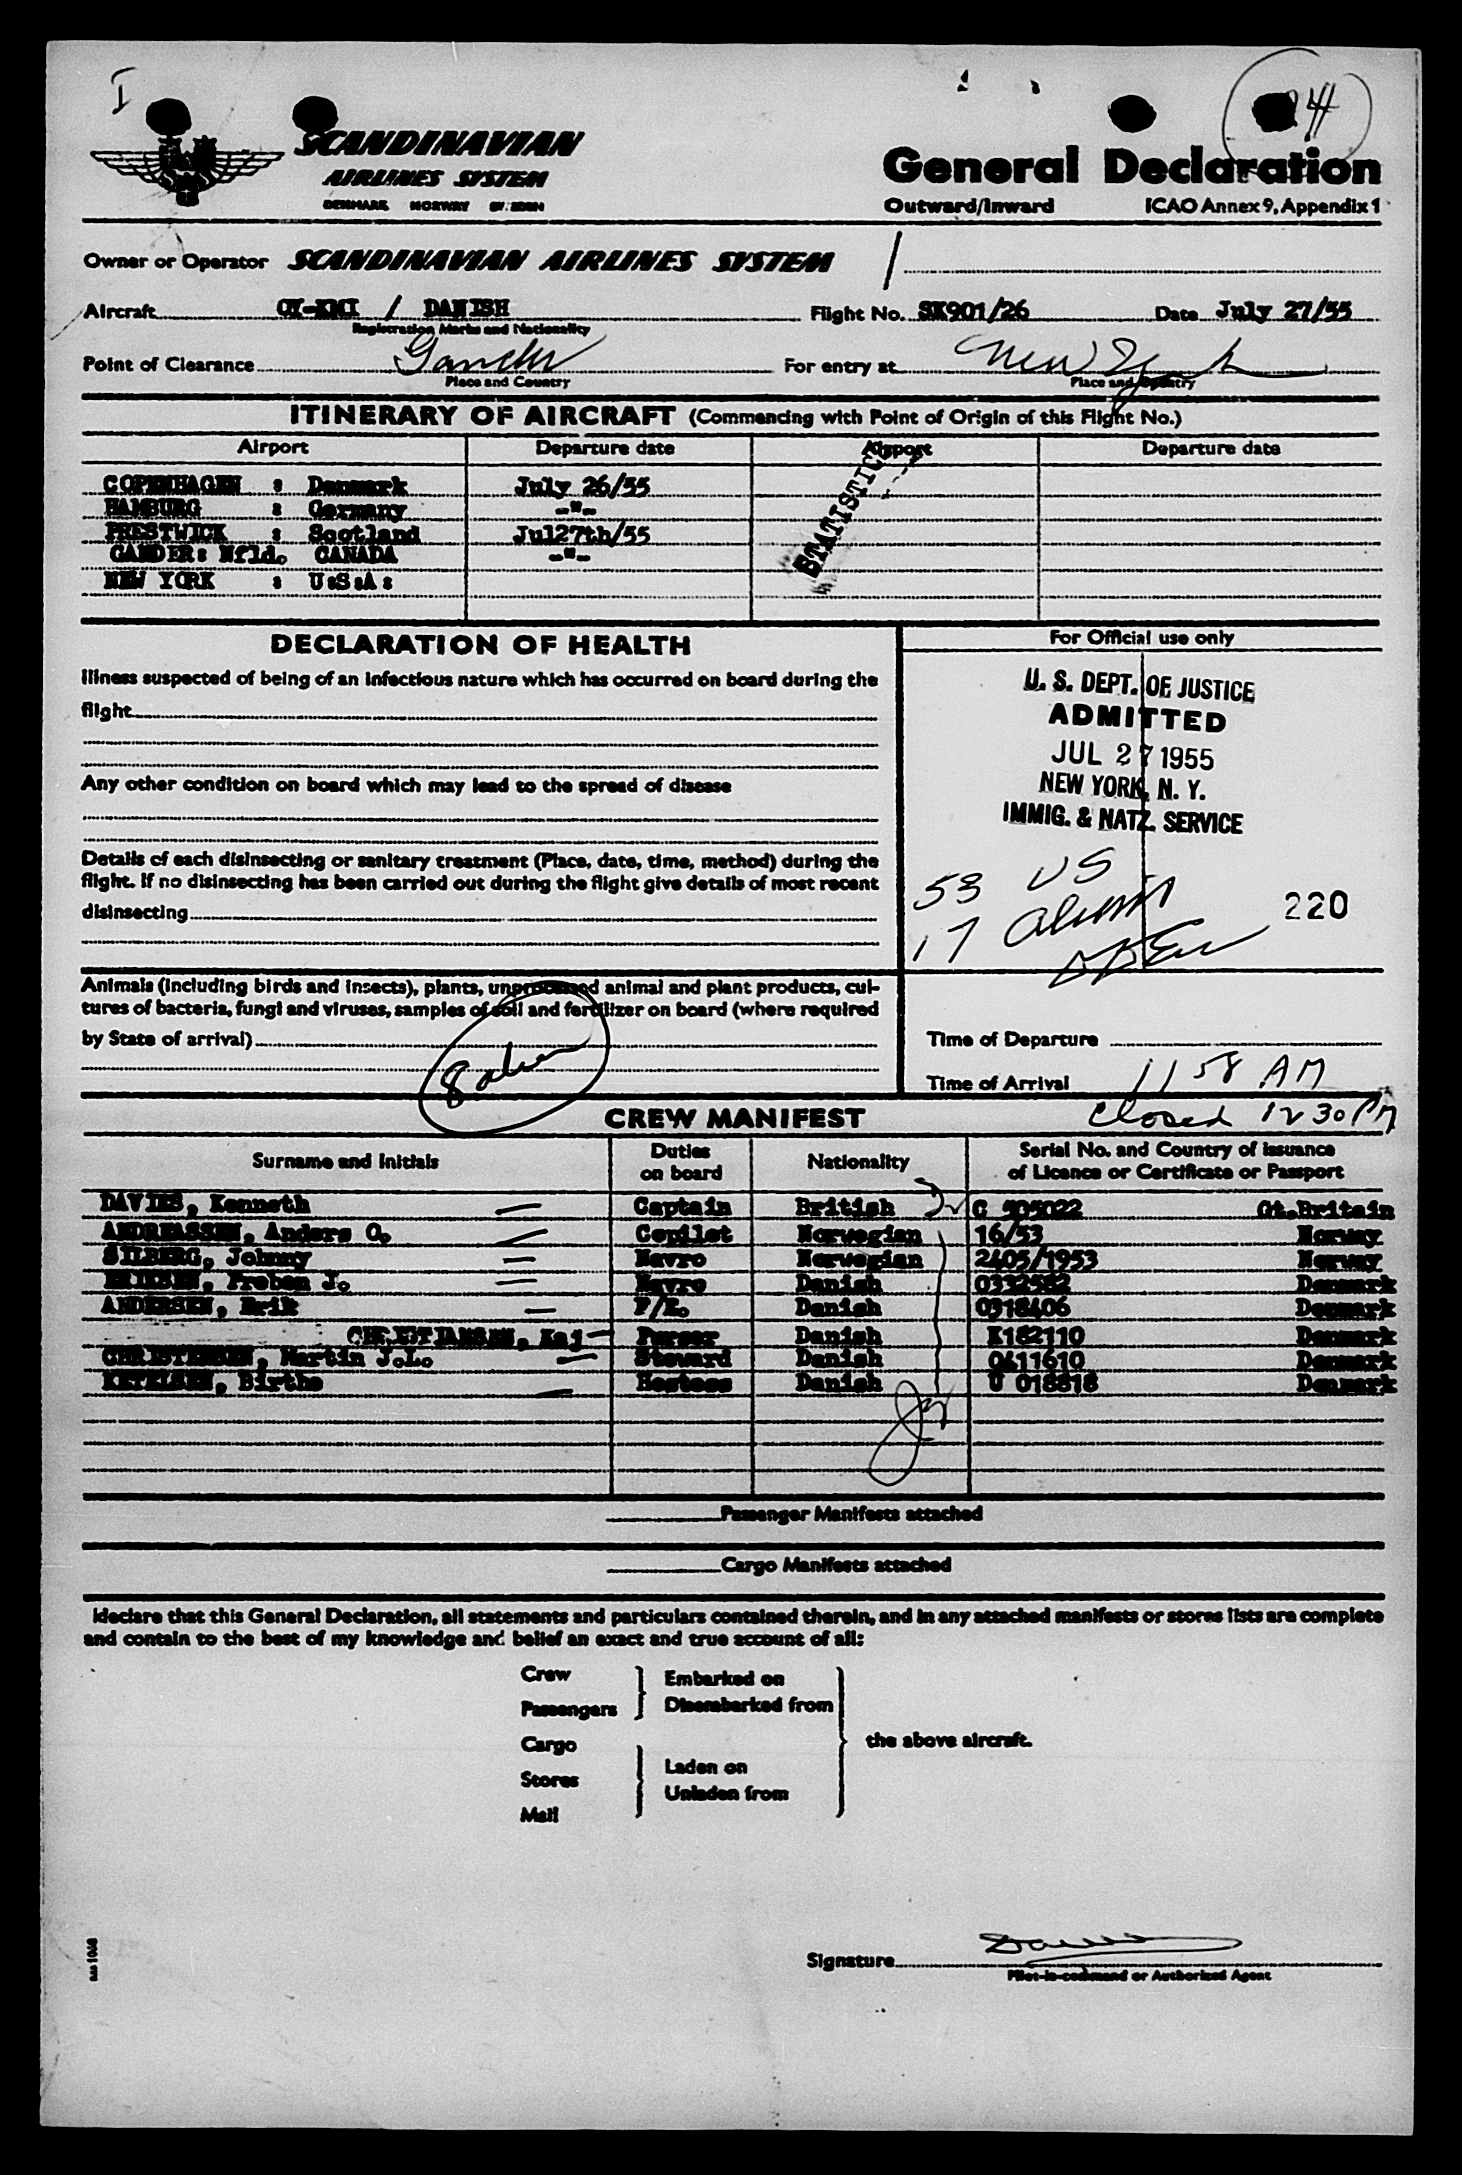 I
24
SCANDINAVIAN
AIRLINES SYSTEM
DENMARK NORWAY SWEDEN
General Declaration
Outward/Inward ICAO Annex 9, Appendix 1
Owner or Operator SCANDINAVIAN AIRLINES SYSTEM /
Aircraft OY-KMI / DANISH Flight No. SK901/26 Date July 27/55
Registration Marks and Nationality
Point of Clearance Gander For entry at New York
Place and Country Place and Country
ITINERARY OF AIRCRAFT (Commencing with Point of Origin of this Flight No.)
Airport Departure date Airport Departure date
STATISTICS
COPENHAGEN : Denmark July 26/55
HAMBURG : Germany -"-
PRESTWICK : Scotland Jul27th/55
GANDER: Nfld. CANADA -"-
NEW YORK : U:S:A:
DECLARATION OF HEALTH
Illness suspected of being of an infectious nature which has occurred on board during the
flight
Any other condition on board which may lead to the spread of disease
Details of each disinsecting or sanitary treatment (Place, date, time, method) during the
flight. If no disinsecting has been carried out during the flight give details of most recent
disinsecting
Animals (including birds and insects), plants, unprocessed animal and plant products, cul-
tures of bacteria, fungi and viruses, samples of soil and fertilizer on board (where required
by State of arrival)
8 alien
For Official use only
U. S. DEPT. OF JUSTICE
ADMITTED
JUL 27 1955
NEW YORK, N. Y.
IMMIG. & NATZ. SERVICE
53 US
17 alien
220
Time of Departure
Time of Arrival 11 58 AM
Closed 12 30 PM
CREW MANIFEST
Surname and Initials Duties on board Nationality Serial No. and Country of issuance of Licence or Certificate or Passport
DAVIES, Kenneth Captain British C 505022 Gt.Britain
ANDREASSEN, Anders O. Copilot Norwegian 16/53 Norway
SILBERG, Johnny Navro Norwegian 2405/1953 Norway
ERIKSEN, Preben J. Navro Danish 0332582 Denmark
ANDERSEN, Erik F/E. Danish 0918406 Denmark
CHRISTIANSEN, Kaj Purser Danish K182110 Denmark
CHRISTENSEN, Martin J.L. Steward Danish 0411610 Denmark
KETELSEN, Birthe Hostess Danish U 018818 Denmark
Passenger Manifests attached
Cargo Manifests attached
Ideclare that this General Declaration, all statements and particulars contained therein, and in any attached manifests or stores lists are complete
and contain to the best of my knowledge and belief an exact and true account of all:
Crew
Passengers
Embarked on
Disembarked from
Cargo
Stores
Mail
Laden on
Unladen from
the above aircraft.
Signature Davies
Pilot-in-command or Authorized Agent